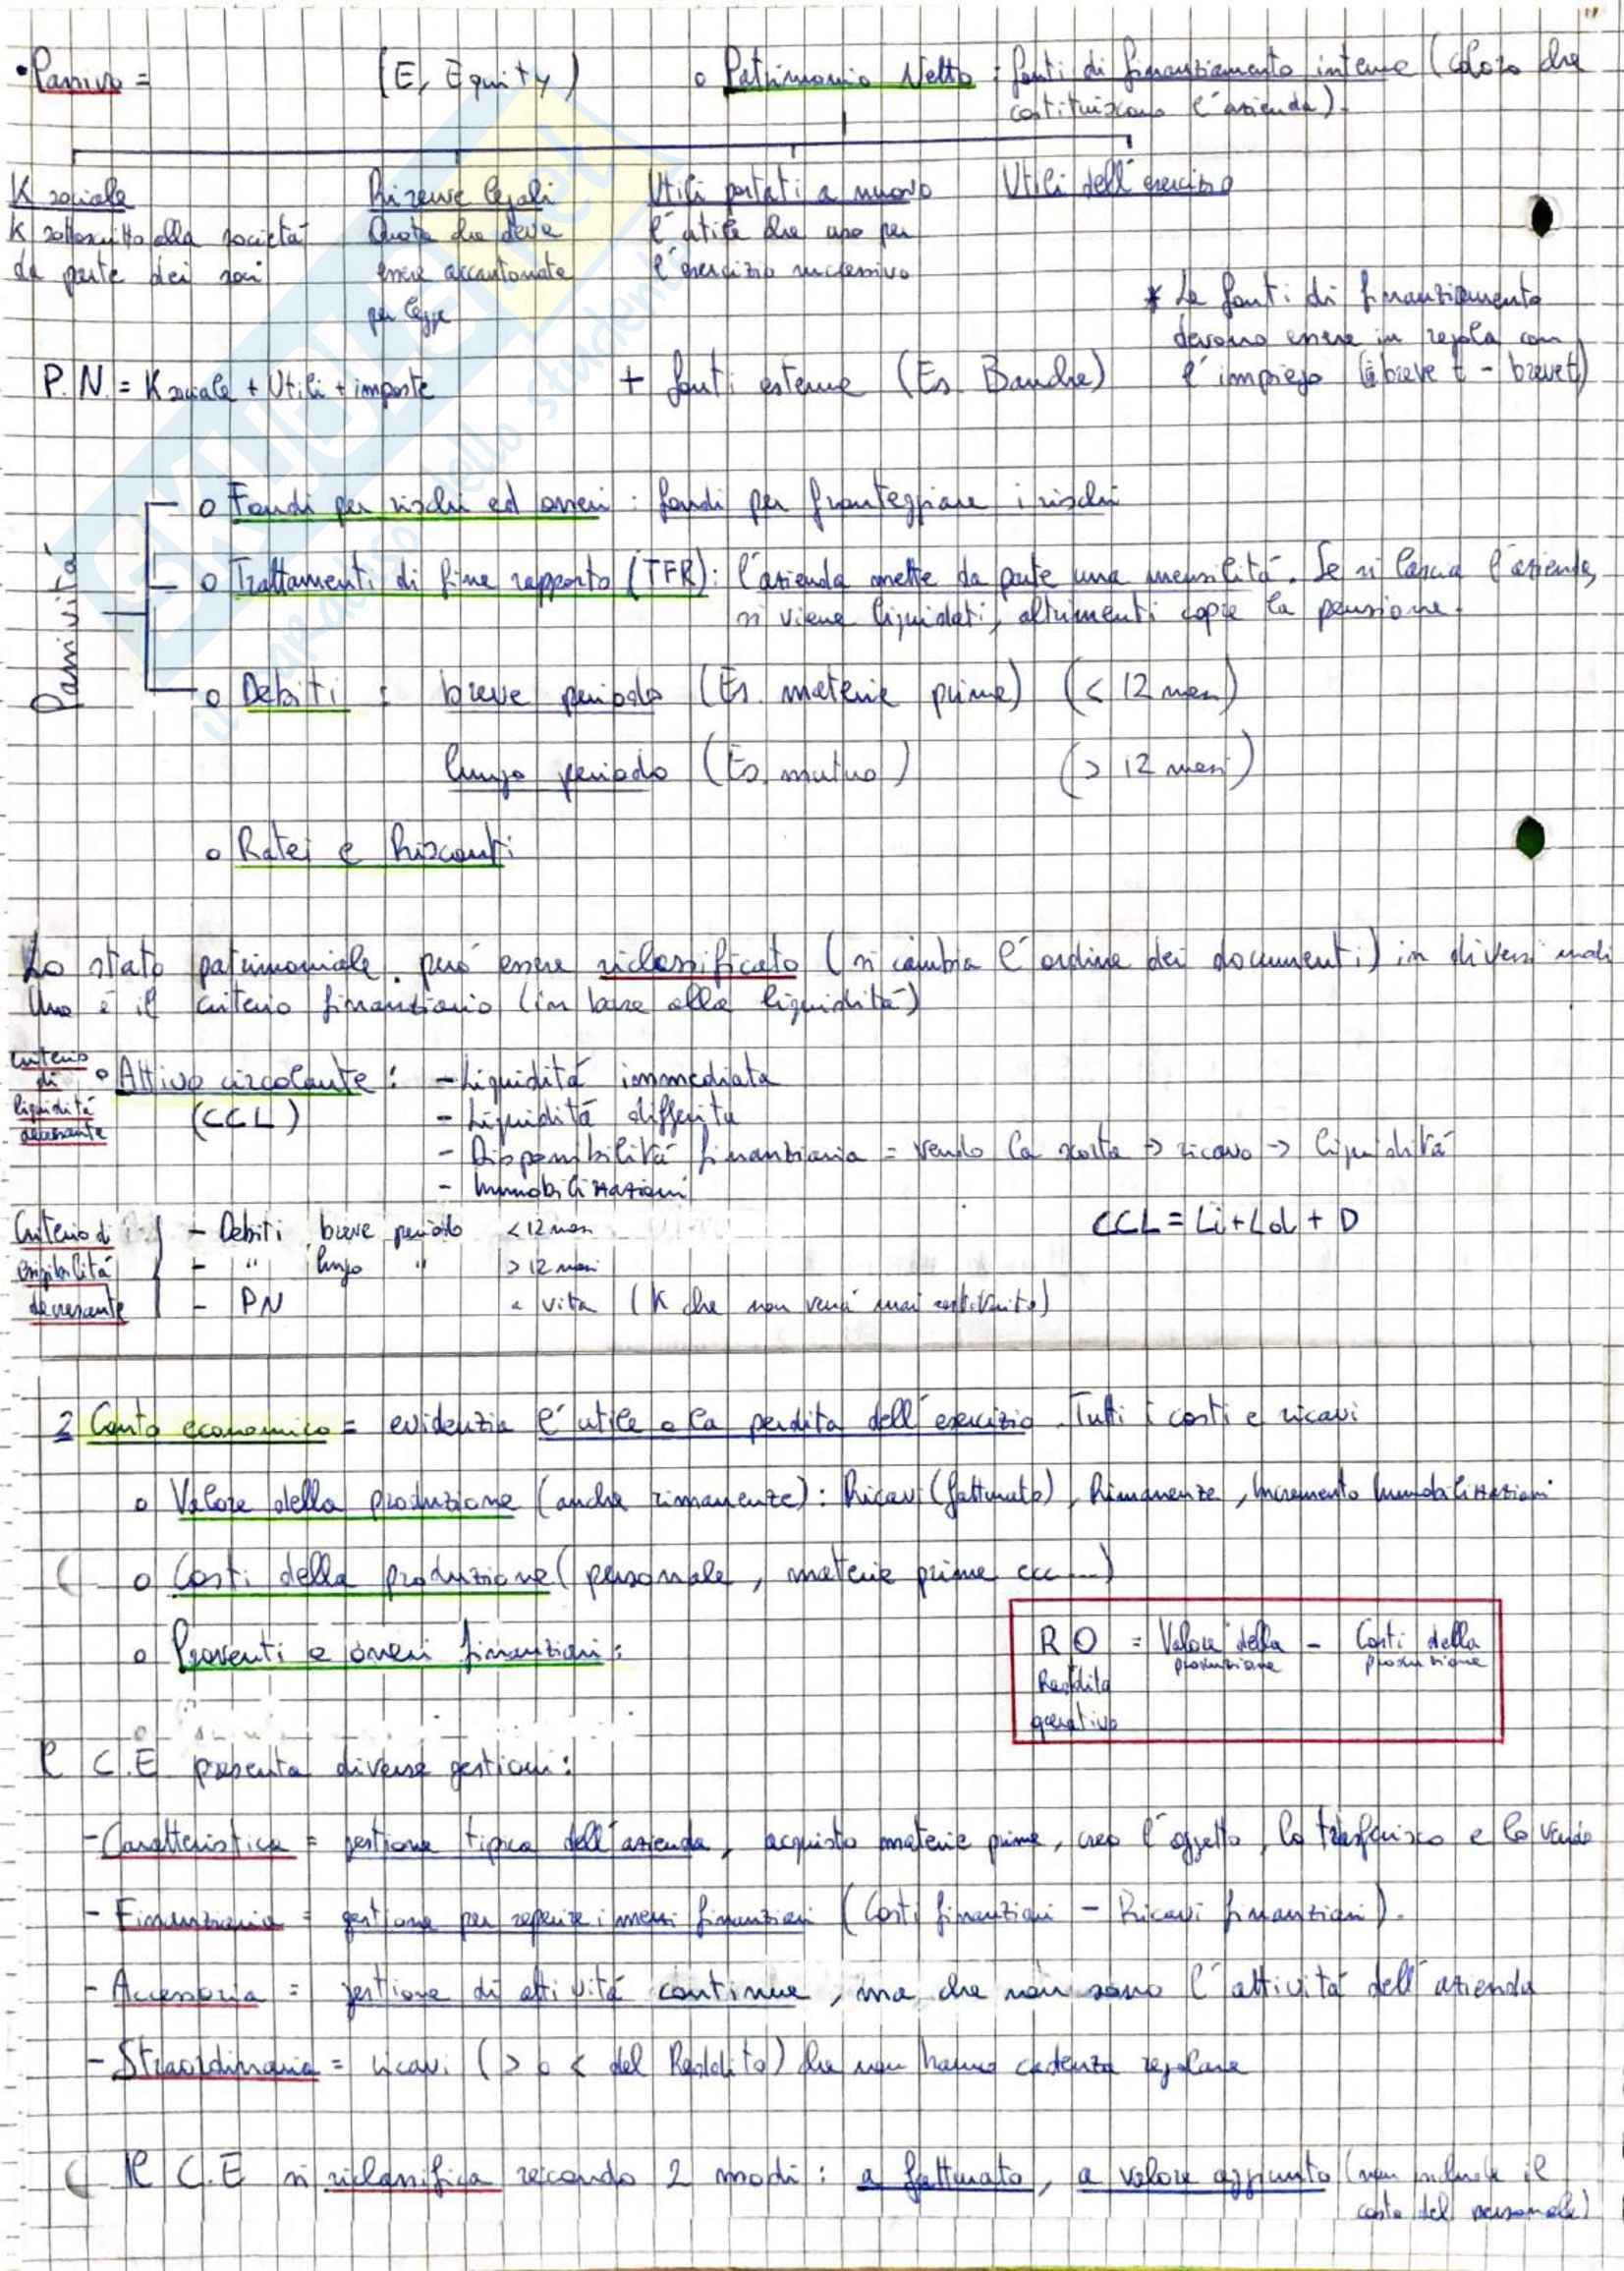 • Passivo = (E, Equity) o Patrimonio Netto : fonti di finanziamento interne (coloro che
costituiscono l'azienda).
K sociale
K sottoscritto alla società
da parte dei soci
Riserve legali
Quota che deve
essere accantonata
per legge
Utili portati a nuovo
l'utile che uso per
l'esercizio successivo
Utili dell'esercizio
* Le fonti di finanziamento
devono essere in regola con
l'impiego (breve t - breve t)
P.N. = K sociale + Utili + imposte + fonti esterne (Es. Banche)
Passività
o Fondi per rischi ed oneri : fondi per fronteggiare i rischi
o Trattamenti di fine rapporto (TFR): l'azienda mette da parte una mensilità. Se si lascia l'azienda,
si viene liquidati, altrimenti copre la pensione.
o Debiti : breve periodo (Es. materie prime) (< 12 mesi)
lungo periodo (Es. mutuo) (> 12 mesi)
o Ratei e Risconti
Lo stato patrimoniale può essere riclassificato (si cambia l'ordine dei documenti) in diversi modi
Uno è il criterio finanziario (in base alla liquidità)
Criterio di liquidità decrescente
o Attivo circolante : - Liquidità immediata
(CCL) - Liquidità differita
- Disponibilità finanziaria = vendo la scorta → ricavo → liquidità
- Immobilizzazioni
CCL = Li + Ld + D
Criterio di esigibilità decrescente
- Debiti breve periodo < 12 mesi
- " lungo " > 12 mesi
- PN a vita (K che non verrà mai restituito)
2 Conto economico = evidenzia l'utile o la perdita dell'esercizio. Tutti i costi e ricavi
o Valore della produzione (anche rimanenze) : Ricavi (fatturato), Rimanenze, Incremento Immobilizzazioni
o Costi della produzione (personale, materie prime ecc ...)
o Proventi e oneri finanziari :
RO = Valore della produzione - Costi della produzione
Reddito
operativo
Il C.E presenta diverse gestioni :
- Caratteristica = gestione tipica dell'azienda, acquisto materie prime, creo l'oggetto, lo trasferisco e lo vendo
- Finanziaria = gestione per reperire i mezzi finanziari (Costi finanziari - Ricavi finanziari).
- Accessoria = gestione di attività continue, ma che non sono l'attività dell'azienda
- Straordinaria = ricavi (> o < del Reddito) che non hanno cadenza regolare
Il C.E si riclassifica secondo 2 modi : a fatturato, a valore aggiunto (non include il
costo del personale)